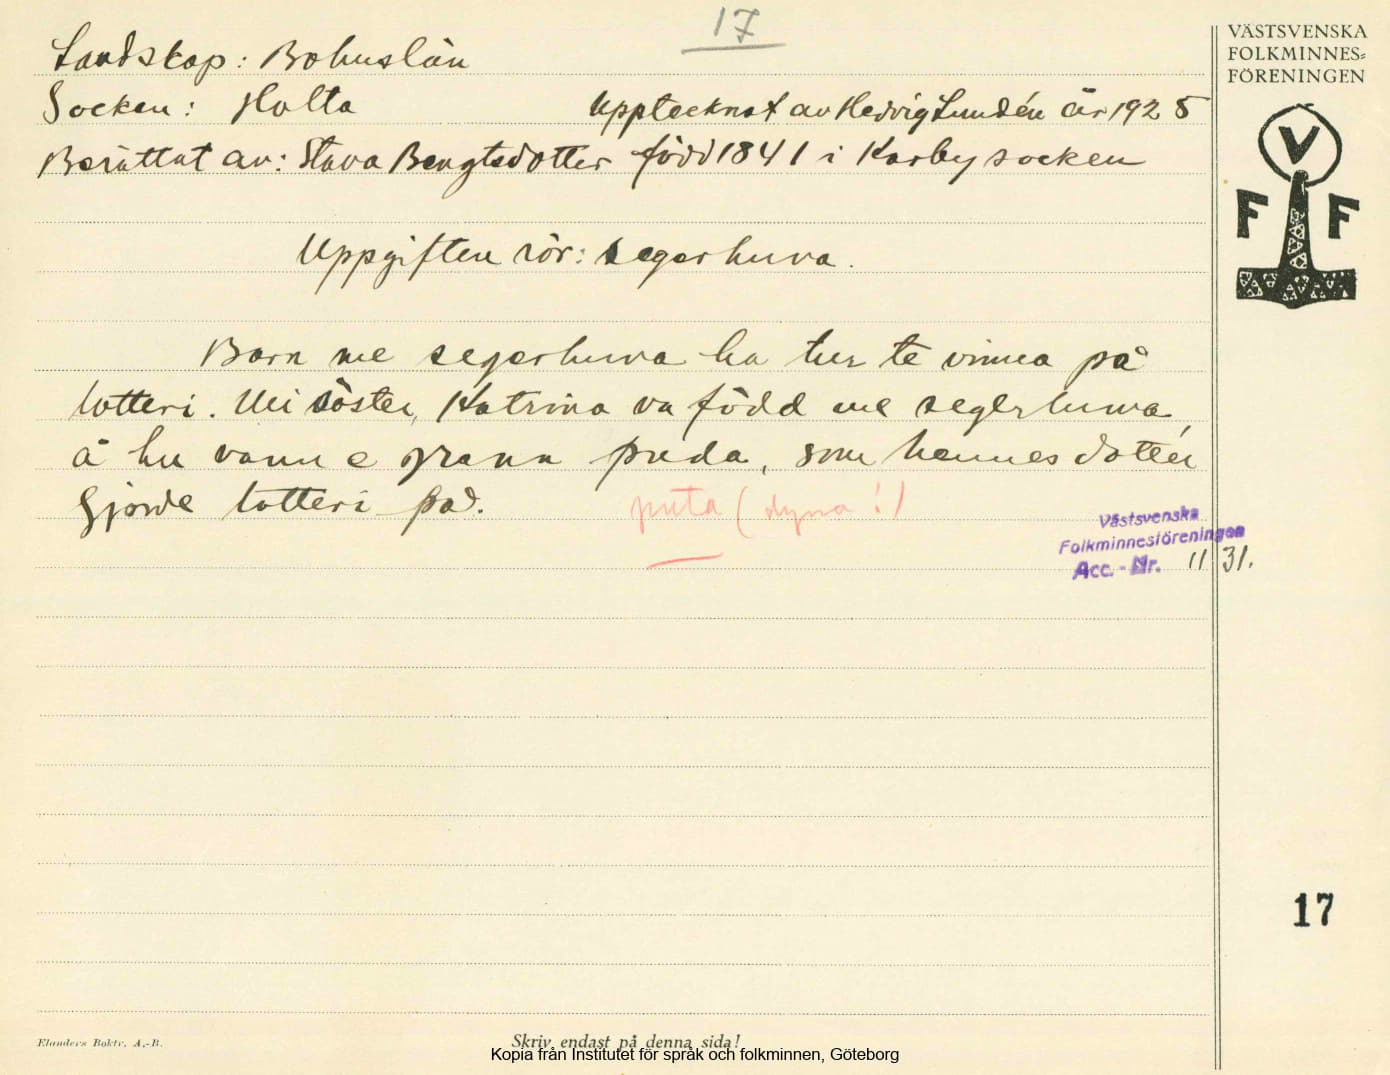 17
VÄSTSVENSKA
FOLKMINNES=
FÖRENINGEN
Landskap: Bohuslän
Socken: Holta Upptecknat av Hedvig Lundén år 1925
Berättat av: Stava Bengtsdotter född 1841 i Karby socken
V
F F
Uppgiften rör: segerhuva.
Barn me segerhuva ha tur te vinna på
lotteri. Mi söster, Katrina va född me segerhuva,
å hu vann e grann puda, som hennes dotter
gjorde lotteri på.
puta (dyna!)
Västsvenska
Folkminnesföreningen
Acc. - Nr. 1131.
17
Elanders Boktr. A.-B.
Skriv endast på denna sida!
Kopia från Institutet för språk och folkminnen, Göteborg